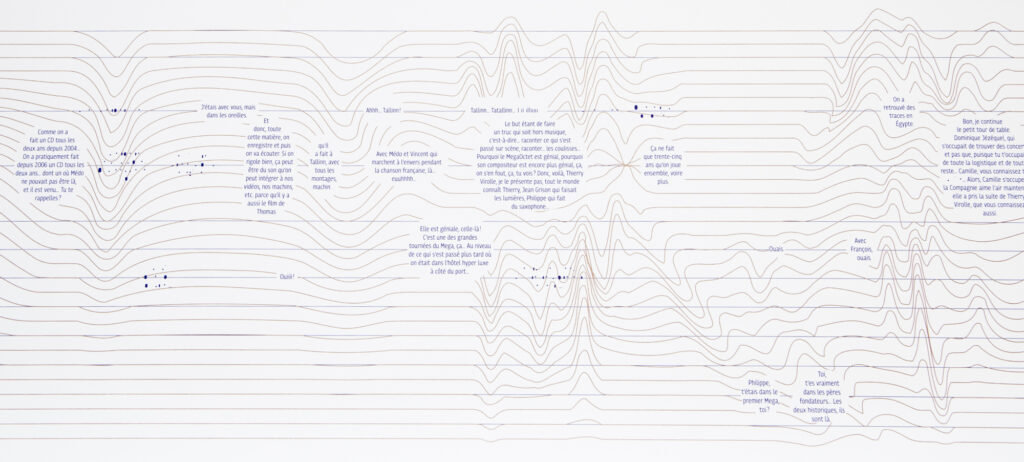 Comme on a
fait un CD tous les
deux ans depuis 2004...
On a pratiquement fait
depuis 2006 un CD tous les
deux ans... dont un où Médo
ne pouvait pas être là,
et il est venu... Tu te
rappelles ?
J'étais avec vous, mais
dans les oreilles.
Et
donc, toute
cette matière, on
enregistre et puis
on va écouter. Si on
rigole bien, ça peut
être du son qu'on
peut intégrer à nos
vidéos, nos machins,
etc. parce qu'il y a
aussi le film de
Thomas
qu'il
a fait à
Tallinn, avec
tous les
montages,
machin
Ahhh... Tallinn !
Avec Médo et Vincent qui
marchent à l'envers pendant
la chanson française, là...
euuhhhh...
Tallinn... Tatallinn...
Le but étant de faire
un truc qui soit hors musique,
c'est-à-dire... raconter ce qui s'est
passé sur scène, raconter... les coulisses...
Pourquoi le MegaOctet est génial, pourquoi
son compositeur est encore plus génial, ça,
on s'en fout, ça, tu vois ? Donc, voilà, Thierry
Virolle, je le présente pas, tout le monde
connaît Thierry, Jean Grison qui faisait
les lumières, Philippe qui fait
du saxophone...
Ça ne fait
que trente-cinq
ans qu'on joue
ensemble, voire
plus.
On a
retrouvé des
traces en
Égypte
Bon, je continue
le petit tour de table.
Dominique Jézéquel, qui
s'occupait de trouver des concer
et pas que, puisque tu t'occupai
de toute la logistique et de tout
reste... Camille, vous connaissez t
... Alors, Camille s'occupe
la Compagnie aime l'air mainten
elle a pris la suite de Thierry
Virolle, que vous connaissez
aussi.
Elle est géniale, celle-là !
C'est une des grandes
tournées du Mega, ça... Au niveau
de ce qui s'est passé plus tard où
on était dans l'hôtel hyper luxe
à côté du port...
Ouais
Avec
François,
ouais.
Philippe,
t'étais dans le
premier Mega,
toi ?
Toi,
t'es vraiment
dans les pères
fondateurs... Les
deux historiques, ils
sont là.